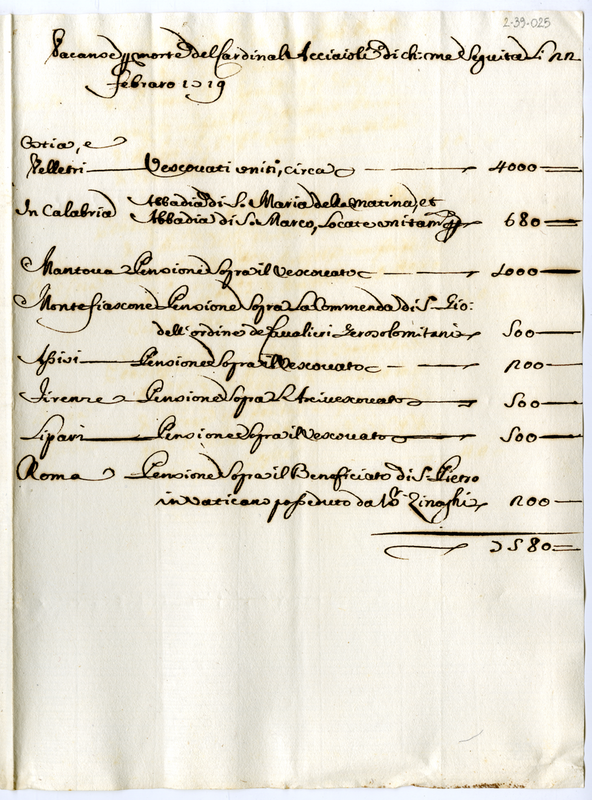 2-39-025
Vacanze per morte del Cardinale Acciaioli di ch: me: Seguita li 22
Febraro 1719
Ostia, e
Velletri Vescovati uniti, circa 4000
In Calabria Abbadia di S. Maria della matina, et
Abbadia di S. Marco, locate unitam.te 680
Mantova Pensione sopra il Vescovato 1000
Montefiascone Pensione sopra la Commenda di S. Gio:
dell'ordine de Cavalieri Gerosolomitani 500
Assisi Pensione sopra il Vescovato 200
Firenze Pensione sopra l'Arcivescovato 500
Lipari Pensione sopra il Vescovato 500
Roma Pensione sopra il Beneficiato di S. Pietro
in Vaticano posseduto da 200
7580